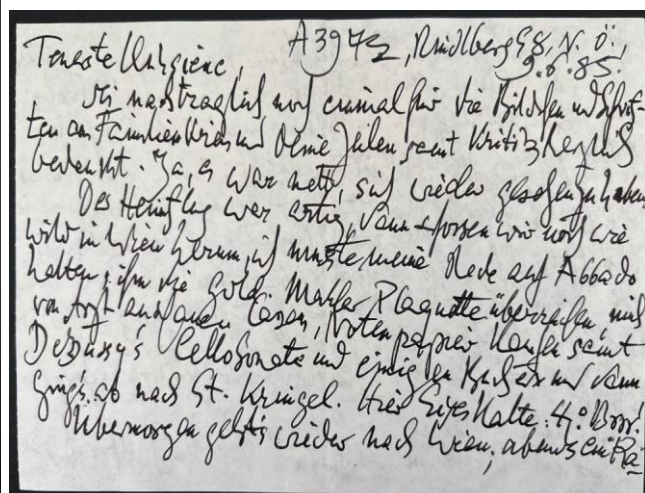 A3972, Rindlberg 68, N.Ö.,
9.6.85.
Teuerste
sei nachträglich noch einmal für die Bildchen und Schrif-
ten am Familienkries und Deine Zeilen samt Kritik herzlich
bedankt. Ja, es war nett, sich wieder gesehen zu haben.
Der Heimflug war artig, dann flossen wir noch wie
wild in Wien herum, ich musste meine Rede auf Abbado
halten, ihm die Gold. Mahler Plaquette überreichen, mich
vom Arzt anschauen lassen, Notenpapier kaufen samt
Debussy's Cellosonate und einigen Büchern und dann
ging's ab nach St. Kringel. Hier Eiseskälte: 4° Brrr!
Übermorgen geht's wieder nach Wien, abends ein Ra-